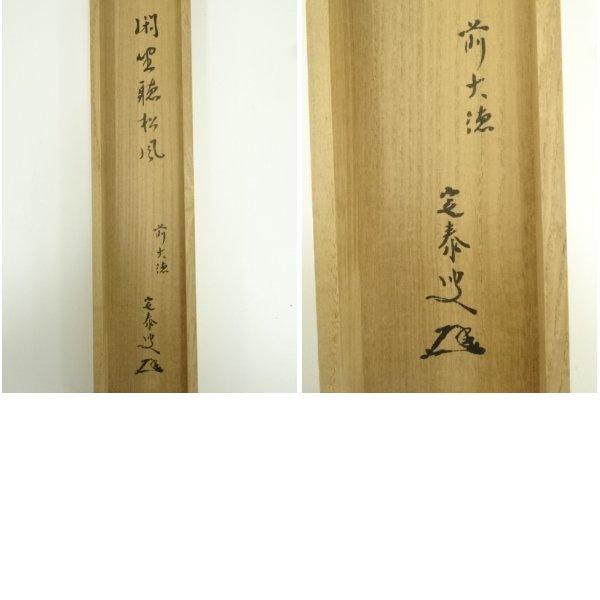 閑坐聴松風
前大徳
宏泰叟
前大徳
宏泰叟